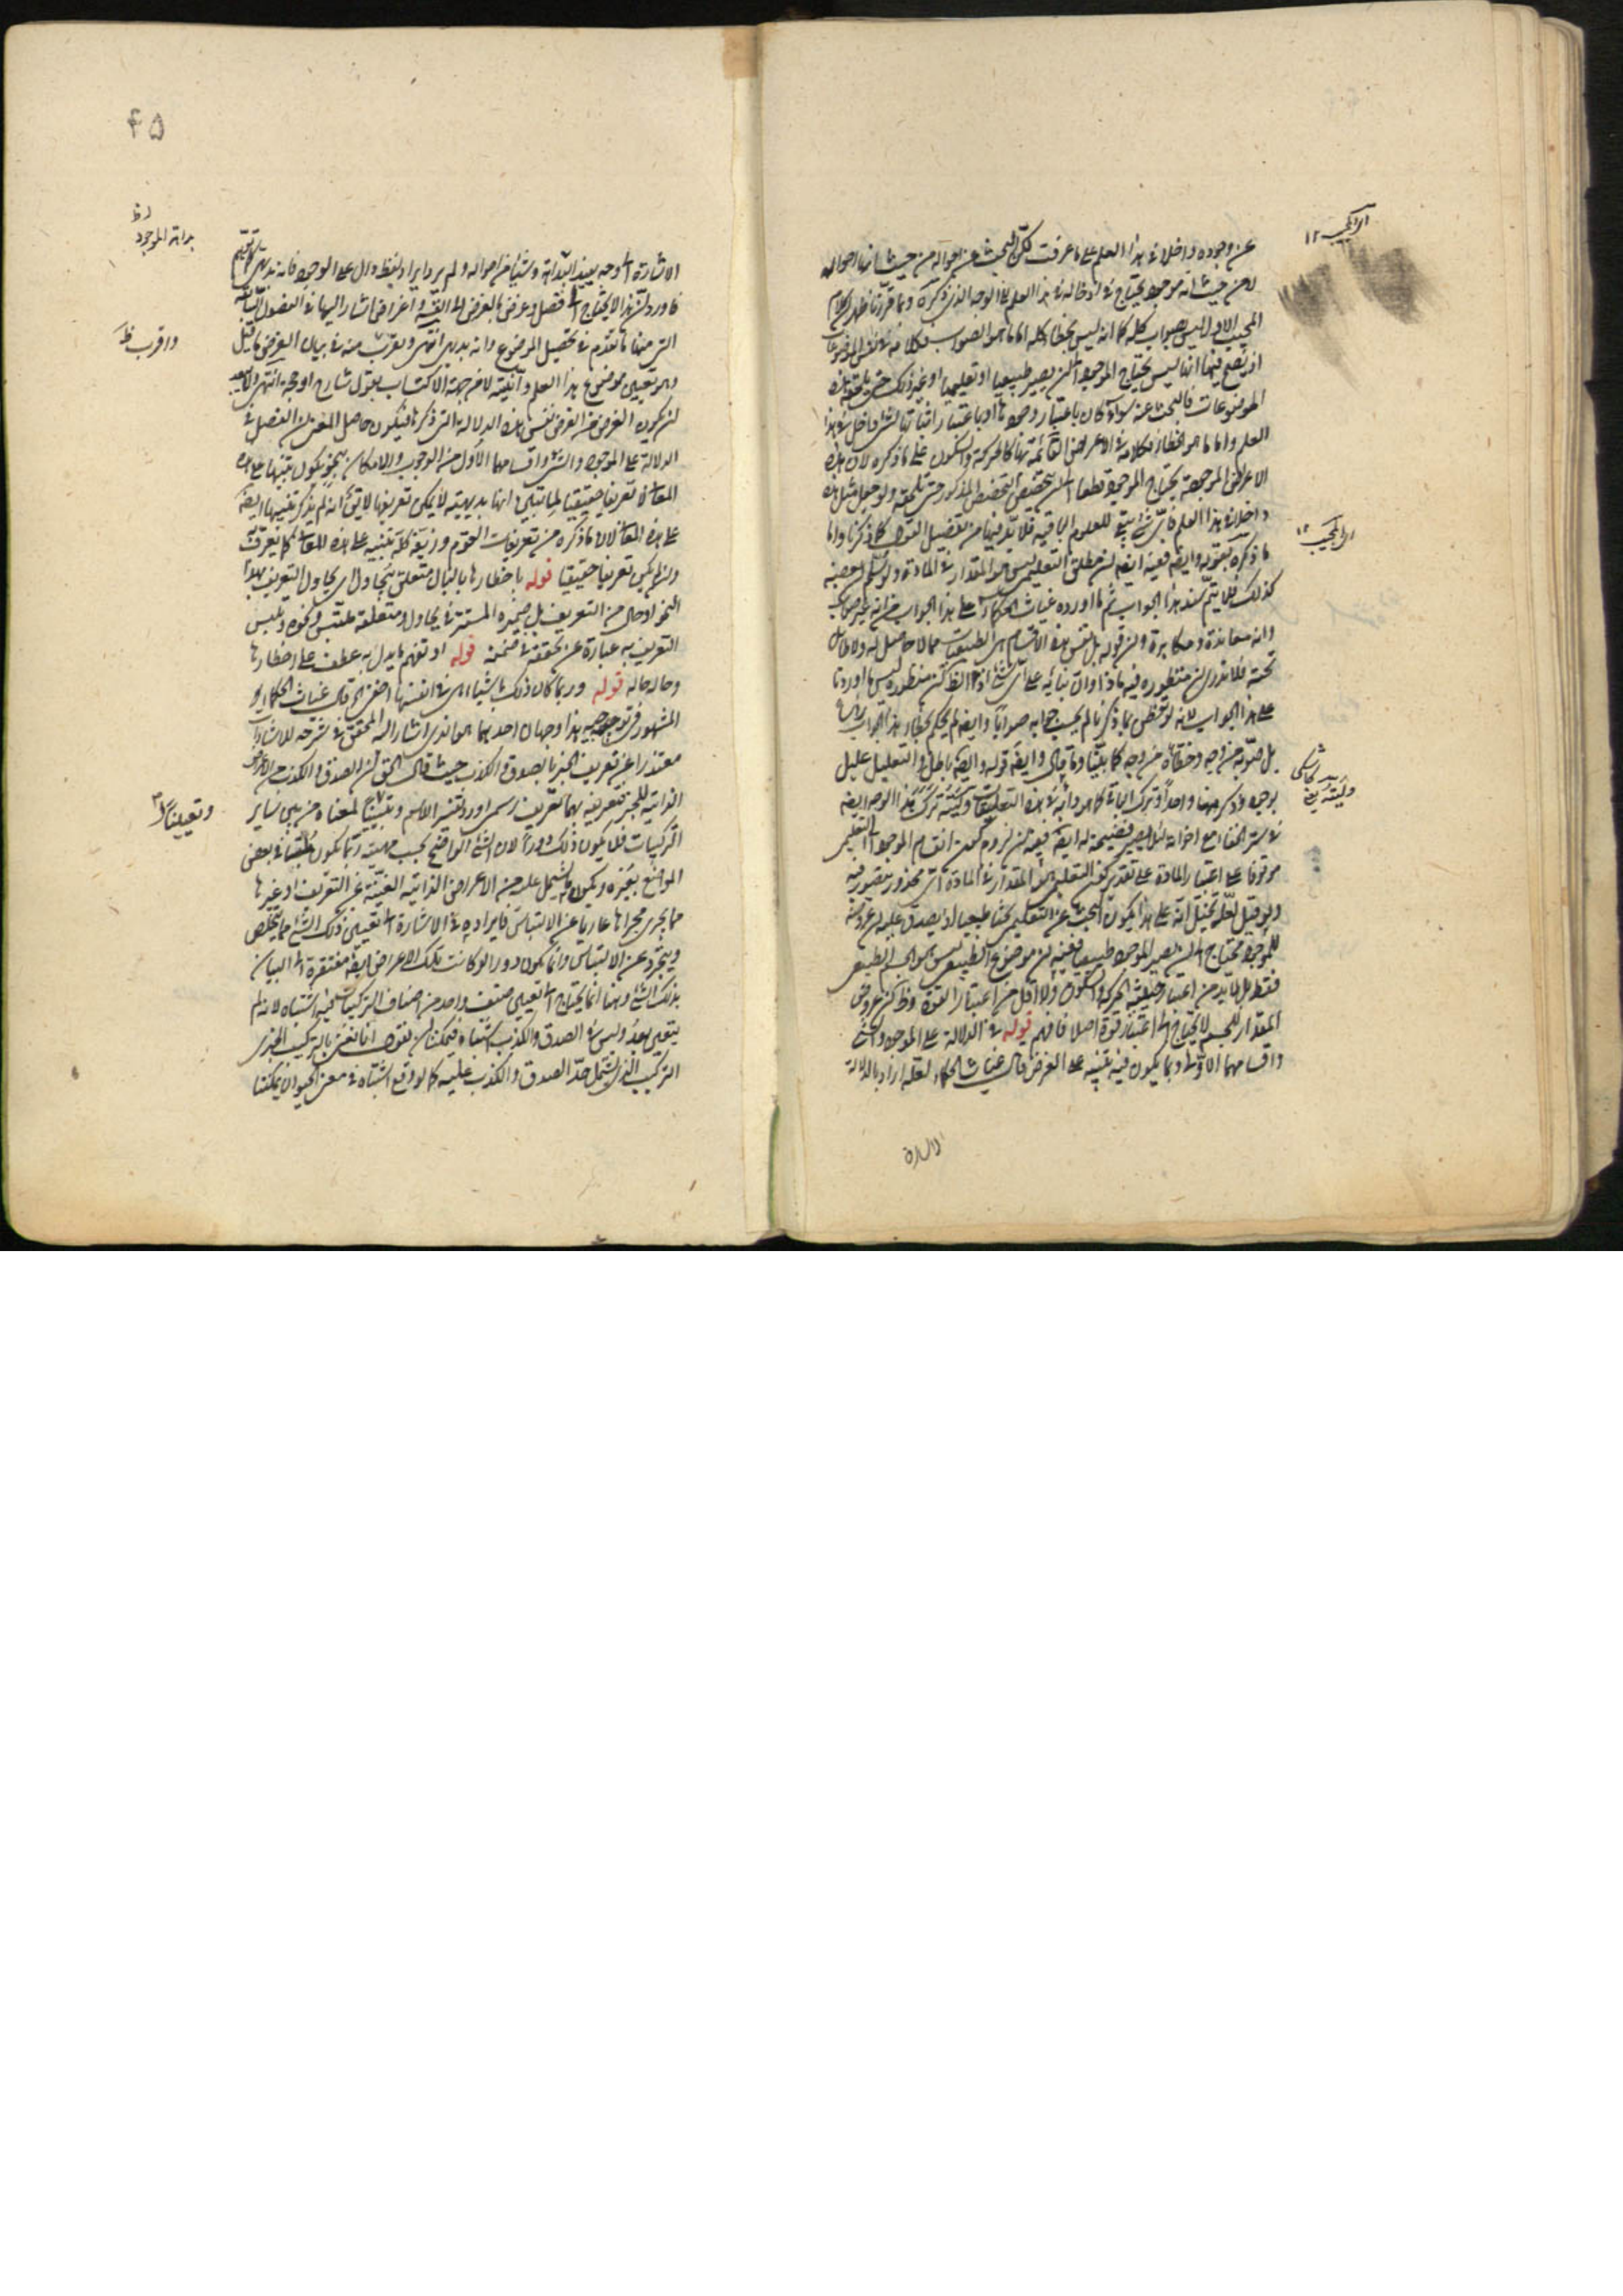 عن وجوده داخلا في هذا العلم على ما عرفت لكن البحث عن احواله من حيث انها احواله
لا من حيث انه موجود يحتاج في ادخاله في هذا العلم الى الوجه الذي ذكره وبما قررنا ظهر ان كلام
المجيب الاول ليس بصواب كله كما انه ليس بخطا كله اما ما هو الصواب فكلامه في نفس الموضوعات
اذ يصح فيها انها ليس يحتاج الموجود الى ان يصير طبيعيا او تعليميا او غير ذلك حتى يلحقه هذه
الموضوعات فالبحث عنه سواء كان باعتبار وجودها او باعتبار اثباتها لشئ داخل في هذا
العلم واما ما هو الخطا فكلامه في الاعراض القائمة بها كالحركة والسكون على ما ذكره لان هذه
الاعراض الموجودة يحتاج الموجود قطعا الى تخصيص التخصص المذكور حتى تلحقه ولو جعل مثل هذه
داخلا في هذا العلم فاى شئ يبقى للعلوم الباقية فلا بد فيها من تفصيل القول كما ذكرنا واما
ما ذكره بقوله وايضا ففيه ايضا ان مطلق التعليمى ليس هو المقدار في المادة ولو سلم بعضه
كذلك فلا يتم سند هذا الجواب ثم ما اورده غياث الحكماء على هذا الجواب من انه غير صواب
وانه معاندة ومكابرة وان قوله بل نفس هذه الاقسام هي الطبيعيات مما لا حاصل له ولا طائل
تحته فلا ندرى ان منظوره فيه ماذا وان بنائه على اى شئ اذ الظ كون منظوره ليس ما اوردنا
على هذا الجواب لانه لو تفطن بما ذكرنا لم يحسب جوابه صوابا وايضا لم يحكم بخطاء هذا الجواب راسا
بل صوبه من وجه وخطاه من وجه كما بينا وما قال وايضا قوله وايضا باطل والتعليل عليل
بوجوه وذكر منها واحدا وترك الباقى كما هو دابه في هذه التعليقات وليته ترك هذا الوجه ايضا
في ستر الخفاء مع اخواته لئلا يصير فضيحة له ايضا ففيه ان لزوم كون انقسام الموجود الى التعليمى
موقوفا على اعتبار المادة على تقدير كون التعليمى هو المقدار في المادة اى محذور يتصور فيه
ولو قيل لعله تخيل انه على هذا يكون البحث عن التعليمى بحثا طبيعيا اذ يصدق عليه ان عروضه
للموجود محتاج الى ان يصير الموجود طبيعيا ففيه ان موضوع الطبيعى ليس هو الجسم الطبيعى
فقط بل لا بد من اعتبار حيثية الحركة والسكون ولا اقل من اعتبار القوة وظ ان عروض
المقدار للجسم لا يحتاج الى اعتبار قوة اصلا فافهم قوله في الدلالة على الموجود والشئ
واقسامهما الاول وبما يكون فيه تنبيه على الغرض قال غياث الحكماء لعله اراد بالدلالة
الاشارة
الاول المجيب ١٢
المجيب ١٢
وليته
٤٥
الاشارة الى وجه بعيد البداهة وشيئا من احواله ولم يرد ايراد لفظ دال على الوجود فانه بديهى
فاورد ان هذا لا يحتاج الى فصل وعرض بالعرض الى الغرض واعراض اشار اليها في الفصول السابقة
التى منها ما تقدم في تحصيل الموضوع وانه بديهى انتهى والاقرب منه في بيان الغرض ما قيل
وهو تعيين موضوع هذا العلم وآنيته لا من جهة الاكتساب بقول شارح او حجة انتهى والابعد
ان يكون الغرض منه الغرض نفس هذه الدلالة التى ذكرها فيكون حاصل المعنى ان الفصل في
الدلالة على الموجود والشئ واقسامهما الاول من الوجوب والامكان بنحو يكون تنبيها على هذه
المعانى لا تعريفا حقيقيا لما تبين انها بديهية لا يمكن تعريفها لا يقال انه لم يذكر تنبيها ايضا
على هذه المعانى لان ما ذكره من تعريفات القوم وزيفه كله تنبيه على هذه المعانى كما يعرف
وان لم يكن تعريفا حقيقيا قوله باخطارها بالبال متعلق بيحاول اى يحاول التعريف بهذا
النحو او حال من التعريف بل ضميره المستتر في يحاول ومتعلقه ملتبس ونحوه وليس
التعريف به عبارة عن تحققه في ضمنه قوله او تفهم ما يدل به عطف على اخطارها
وحاله حاله قوله وربما كان ذلك باشياء هى في انفسها اخفى الخ قال غياث الحكماء
المشهور في توجيه هذا وجهان احدهما هو الذى اشار اليه المحقق في شرحه للاشارات
معتذرا عن تعريف الخبر بالصدق والكذب حيث قال الحق ان الصدق والكذب من الاعراض
الذاتية للخبر فتعريفه بهما تعريف رسمى اورد تفسير الاسم وتعيينا لمعناه من بين ساير
التركيبات فلا يكون ذلك دورا لان الشئ الواضح بحسب مهيته ربما يكون ملتبسا في بعض
المواضع بغيره ويكون ما يشتمل عليه من الاعراض الذاتية الغنية عن التعريف او غيرها
مما يجرى مجراها عاريا عن الالتباس فايراده في الاشارة الى تعيين ذلك الشئ مما يتلخص
ويتجرد عن الالتباس وانما يكون دورا لو كانت تلك الاعراض ايضا مفتقرة الى البيان
بذلك الشئ وههنا انما يحتاج الى تعيين صنف واحد من اصناف التركيبات فيه اشتباه لانه لم
يتعين بعد وليس في الصدق والكذب اشتباه فيمكن ان نقول انا نعنى بالتركيب الخبرى
التركيب الذى يشتمل حد الصدق والكذب عليه كما لو وقع اشتباه في معنى الحيوان يمكننا
بداهة الموجود
واقرب ظ
وتعيينا